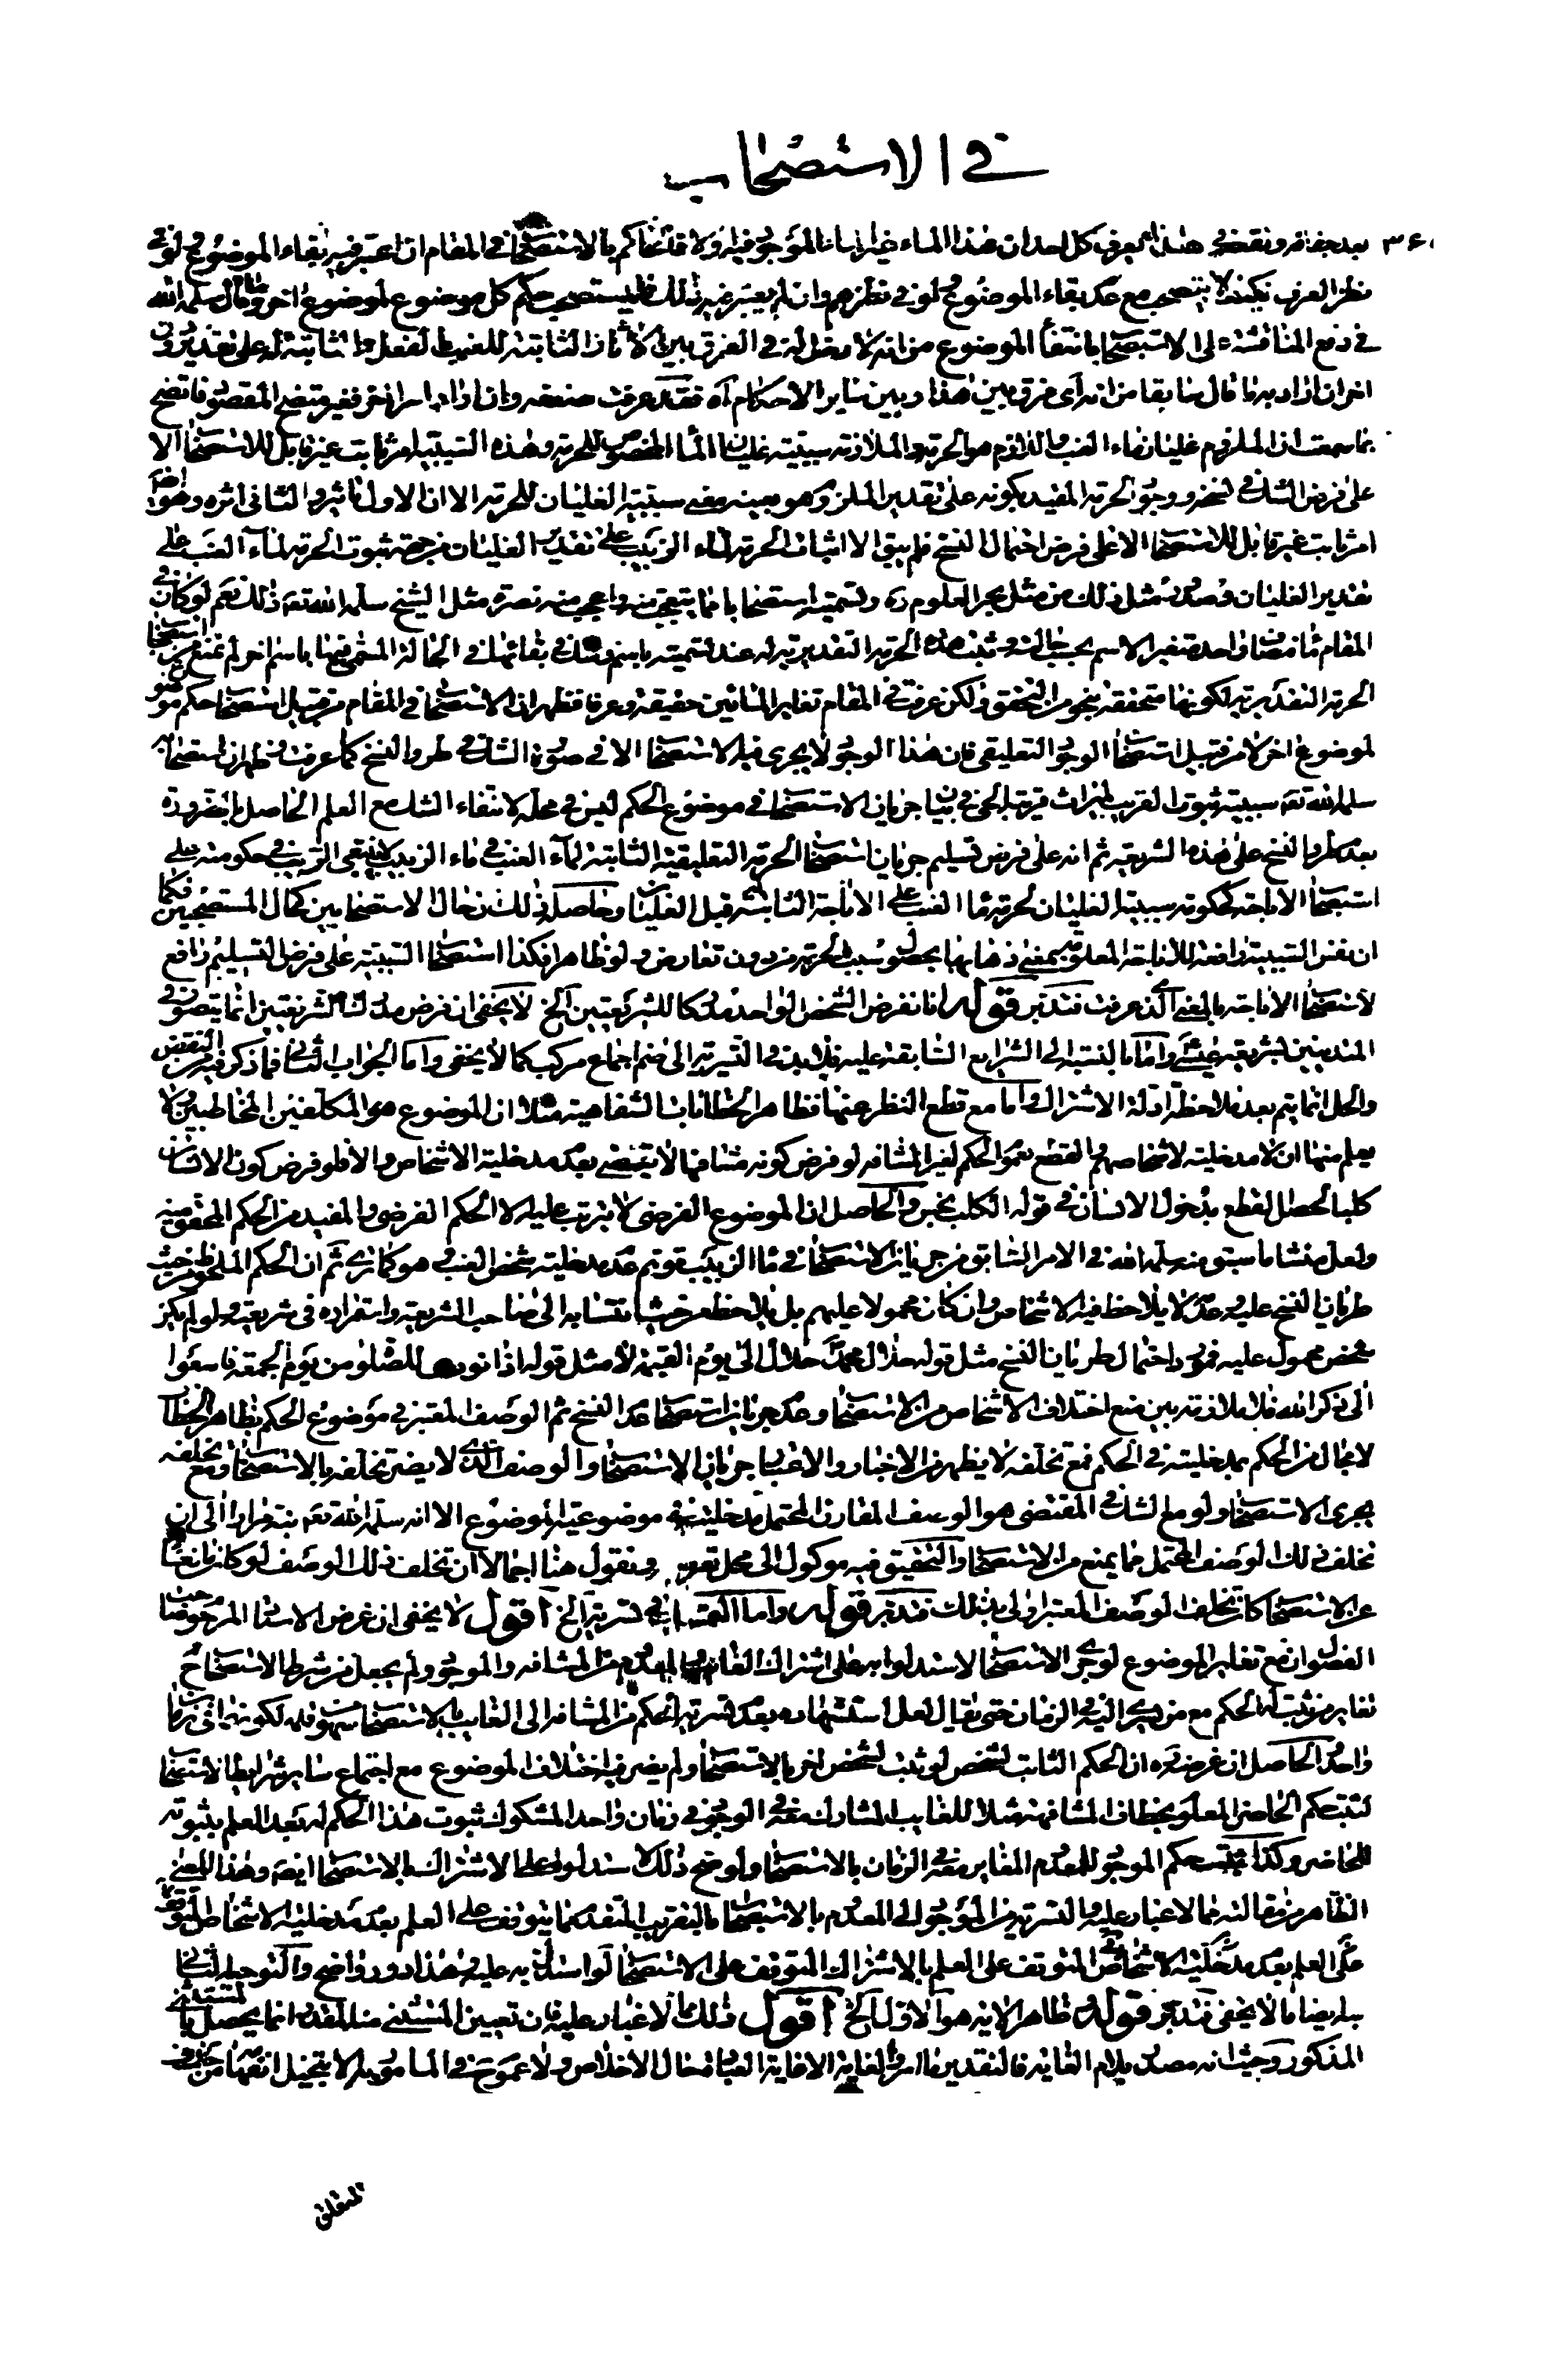 في الاستصحاب
٣٤٠
بعد جفافه ونقضه هذا يعرف كل احد ان هذا الماء غير ما الموجود فيه اولا فالحاكم بالاستصحاب في المقام ان اعتبر فيه بقاء الموضوع ولو في
نظر العرف فكيف لا يستصحب مع عدم بقاء الموضوع ولو في نظرهم وان لم يعتبر غير ذلك فليستصحب حكم كل موضوع لموضوع اخر وما قال سلمه الله
في دفع المناقشة في الاستصحاب بانتفاء الموضوع من انه لا دخل له في الفرق بين الاثار الثابتة للعنب بالفعل والثابتة له على تقدير دون
اخر ان اراد به ما قال سابقا من انه اي فرق بين هذا وبين ساير الاحكام اه فقد عرفت ضعفه وان اراد امرا اخر فغير متضح المقصود فاتضح
بما سمعت ان الملزوم غليان ماء العنب واللازم هو الحرمة والملازمة سببية غليان الماء المخصوص للحرمة وهذه السببية امر ثابت غير قابل للاستصحاب الا
على فرض الشك في النسخ ووجود الحرمة المقيد بكونه على تقدير الملزوم هو بعينه معنى سببية الغليان للحرمة الا ان الاول تاثير والثاني اثره وهو ايضا
امر ثابت غير قابل للاستصحاب الا على فرض احتمال النسخ فلم يبق الا اثبات الحرمة لماء الزبيب على تقدير الغليان من جهة ثبوت الحرمة لماء العنب على
تقدير الغليان وصدور مثل ذلك من مثل بحر العلوم ره وتسميته استصحابا مما يتعجب منه واعجب منه نصرة مثل الشيخ سلمه الله تعالى ذلك نعم لو كان في
المقام ماء مضاف واحد متغير الاسم بحسب حالاته وثبت هذه الحرمة التقديرية له عند تسميته باسم وشك في بقائها في الحالة المسمى فيها باسم اخر لم نمنع من استصحاب
الحرمة التقديرية لكونها متحققة بنحو من التحقق ولكن عرفت في المقام تغاير المائين حقيقة وعرفا فظهر ان الاستصحاب في المقام من قبيل استصحاب حكم موضوع
لموضوع اخر لا من قبيل استصحاب الوجود التعليقي فان هذا الوجود لا يجري فيه الاستصحاب الا في صورة الشك في طرو النسخ كما عرفت فظهر ان استصحابه
سلمه الله تعالى سببية الغليان جريان الاستصحاب في موضوع الحكم ليس في محله لانتفاء الشك مع العلم الحاصل بالضرورة
بعدم طرو النسخ على هذه الشريعة ثم انه على فرض تسليم جريان استصحاب الحرمة التعليقية الثابتة لماء العنب في ماء الزبيب لا ينبغي الريب في حكومته على
استصحاب الاباحة كحكومة سببية الغليان لحرمة ماء العنب على الاباحة الثابتة قبل الغليان وحاصل ذلك ان حال الاستصحابين كحال المستصحبين فكما
ان نفس السببية رافعة للاباحة المعلومة بمعنى ذهابها بحصول سبب الحرمة من دون تعارض ولو ظاهرا فكذا استصحاب السببية على فرض التسليم رافع
لاستصحاب الاباحة بالمعنى الذي عرفت فتدبر قوله انا نفرض الشخص الواحد مدركا للشريعتين الخ لا يخفى ان فرض مدرك الشريعتين انما يتصور في
المتدينين بشريعة عيسى واما بالنسبة الى الشرايع السابقة عليه فلا بد في التسرية الى ضم اجماع مركب كما لا يخفى واما الجواب الثاني فما ذكر فيه من النقض
والحل انما يتم بعد ملاحظة ادلة الاشتراك واما مع قطع النظر عنها فظاهر الخطابات الشفاهية مثلا ان الموضوع هو المكلفين المخاطبين ولا
يعلم منها ان لا مدخلية لاشخاصهم والقطع بعموم الحكم لغير المشافه لو فرض كونه مشافها لا يقتضي بعدم مدخلية الاشخاص والا فلو فرض كون الانسان
كلبا لحصل القطع بدخول الانسان في قوله الكلب نجس والحاصل ان الموضوع الفرضي لا يترتب عليه الا الحكم الفرضي والمفيد هو الحكم المحقق منه
ولعل منشأ ما سبق منه سلمه الله في الامر السابق من جريان الاستصحاب في ماء الزبيب توهم عدم مدخلية شخص العنب وهو كما ترى ثم ان الحكم الملحوظ من حيث
طريان النسخ عليه وعدمه لا يلاحظ فيه الاشخاص وان كان محمولا عليهم بل يلاحظ من حيث انتسابه الى صاحب الشريعة واستقراره في شريعته ولو لم يكن
شخص محمول عليه فمورد احتمال طريان النسخ مثل قوله حلال محمد حلال الى يوم القيمة لا مثل قوله اذا نودي للصلوة من يوم الجمعة فاسعوا
الى ذكر الله فلا ملازمة بين منع اختلاف الاشخاص من الاستصحاب وعدم جريان استصحاب عدم النسخ ثم الوصف المعتبر في موضوع الحكم بظاهر الخطاب
لا مجال من الحكم بمدخليته في الحكم فمع تخلفه لا يظهر من الاخبار والاعتبار جريان الاستصحاب والوصف الذي لا يضر تخلفه بالاستصحاب ومع تخلفه
يجري الاستصحاب ولو مع الشك في المقتضي هو الوصف المقارن المحتمل مدخليته في موضوعية الموضوع الا انه سلمه الله تعالى نبه مرارا الى ان
تخلف ذلك الوصف المحتمل مما يمنع من الاستصحاب والتحقيق فيه موكول الى محل تعرضه ونقول هنا اجمالا ان تخلف ذلك الوصف لو كان مانعا
عن الاستصحاب كان تخلف الوصف المعتبر اولى بذلك فتدبر قوله واما التمسك في تسرية الخ اقول لا يخفى ان غرض الاستاد المرحوم صاحب
الفصول ان مع تغاير الموضوع لو جرى الاستصحاب لاستدلوا به على اشتراك الغائب والمعدوم مع المشافه والموجود ولم يجعل من شرط الاستصحاب
تغاير من ثبت له الحكم مع من يجر اليه في الزمان حتى يقال لعل استشهاده بعدم تسرية الحكم من المشافه الى الغائب بالاستصحاب سهو قلم لكونهما في زمان
واحد والحاصل ان غرضه ره ان الحكم الثابت لشخص لو ثبت لشخص اخر بالاستصحاب ولم يضر فيه اختلاف الموضوع مع اجتماع ساير شرايط الاستصحاب
لثبت حكم الحاضر المعلوم بخطاب المشافهة مثلا للغايب المشارك معه في الوجود في زمان واحد المشكوك ثبوت هذا الحكم له بعد العلم بثبوته
للحاضر وكذا يثبت حكم الموجود للمعدوم المغاير معه في الزمان بالاستصحاب ولو صح ذلك لاستدلوا على الاشتراك بالاستصحاب ايضا وهذا المعنى
الظاهر من مقالته مما لا غبار عليه والتسرية من الموجود الى المعدوم بالاستصحاب بالتقريب المتقدم مما يتوقف على العلم بعدم مدخلية الاشخاص المتوقف
على العلم بعدم مدخلية الاشخاص المتوقف على العلم بالاشتراك المتوقف على الاستصحاب لو استدل به عليه وهذا دور واضح والتوجيه الثاني
ايضا ما لا يخفى فتدبر قوله ظاهر الاية هو الاول الخ اقول ذلك مما لا غبار عليه فان تعيين المستثنى منه المقدر انما يحصل بالمستثنى
المذكور وحيث انه مصدر بلام الغاية فالتقدير ما امروا لغاية الا غاية العبادة حال الاخلاص ولا عموم في المأمور به الا بتخيل
المتعلق